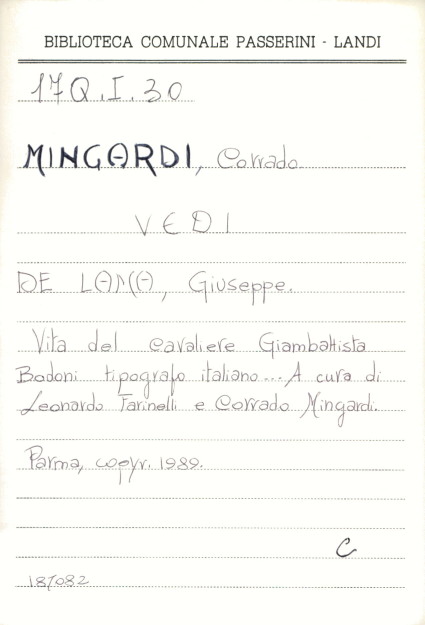 BIBLIOTECA COMUNALE PASSERINI - LANDI
17Q.I.30
MINGARDI, Corrado
VEDI
DE LAMA, Giuseppe.
Vita del cavaliere Giambattista
Bodoni tipografo italiano... A cura di
Leonardo Farinelli e Corrado Mingardi.
Parma, copyr. 1989.
C
187082